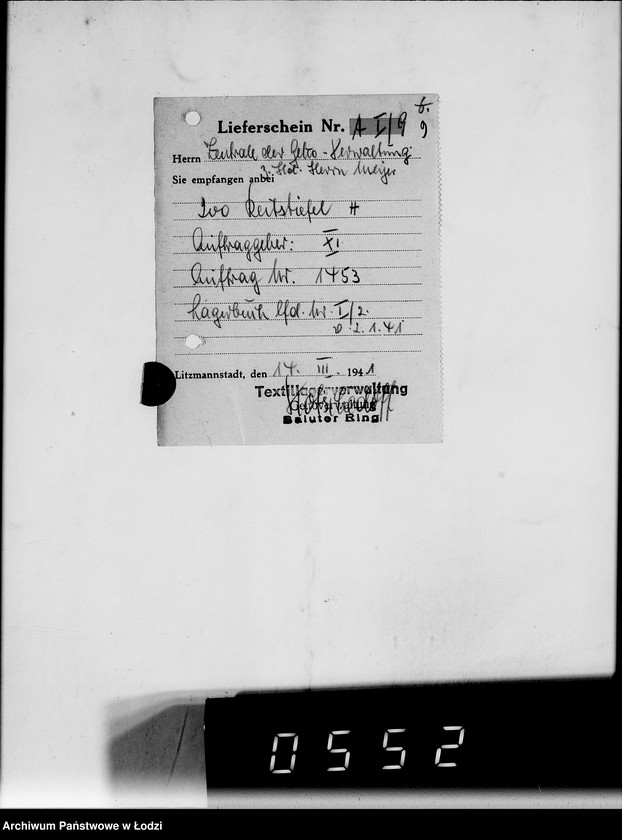 6.
9
Lieferschein Nr. A I/9
Herrn Zentrale der Getto-Verwaltung
z. Hd. Herrn Meyer
Sie empfangen anbei
200 Reitstiefel
Auftraggeber: XI
Auftrag Nr. 1453
Lagerbuch lfd. Nr. I/2.
v. 2.1.41
Litzmannstadt, den 14. III. 1941
Textillagerverwaltung
Baluter Ring
0552
Archiwum Państwowe w Łodzi